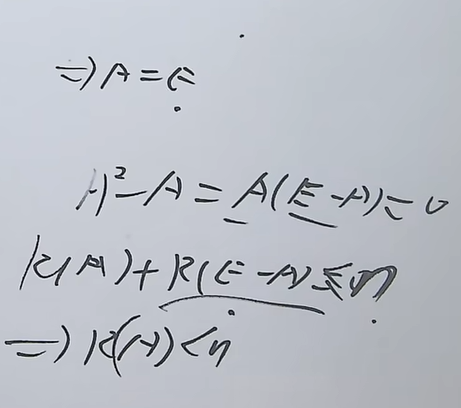 ⇒) A = E
A² - A = A(E - A) = 0
R(A) + R(E - A) ≤ n
⇒) R(A) < n